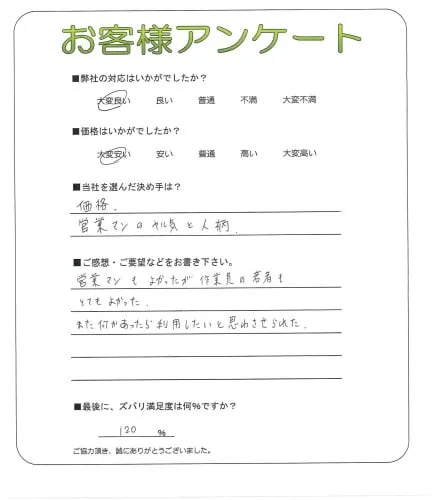 お客様アンケート
■弊社の対応はいかがでしたか?
大変良い 良い 普通 不満 大変不満
■価格はいかがでしたか?
大変安い 安い 普通 高い 大変高い
■当社を選んだ決め手は?
価格.
営業マンのヤル気と人柄.
■ご感想・ご要望などをお書き下さい。
営業マンもよかったが作業員の若者も
とてもよかった.
また何かあったら利用したいと思わさせられた.
■最後に、ズバリ満足度は何%ですか?
120 %
ご協力頂き、誠にありがとうございました。